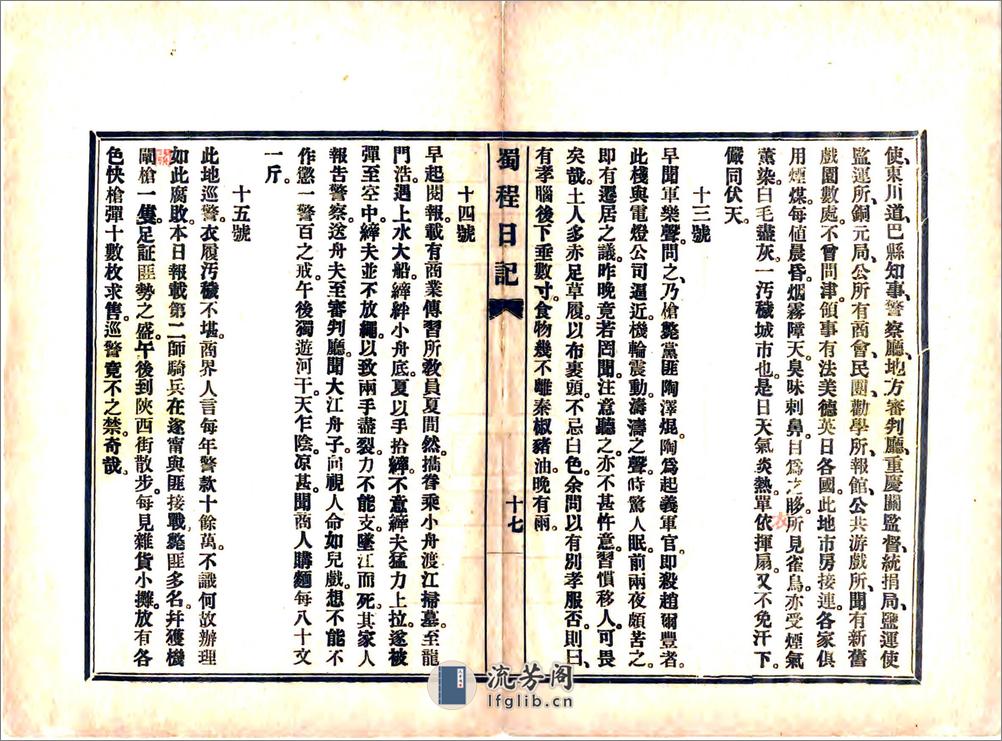 使、東川道、巴縣知事、警察廳、地方審判廳、重慶關監督、統捐局、鹽運使
監運所、銅元局、公所有商會、民團、勸學所、報館、公共游戲所、聞有新舊
戲園數處、不曾問津。領事有法美德英日各國。此地市房接連。各家俱
用煙煤。每値晨昏、烟霧障天。臭味刺鼻。目爲之眵。所見雀鳥亦受煙氣
薰染、白毛盡灰。一汚穢城市也。是日天氣炎熱。單依揮扇。又不免汗下。
儼同伏天。
十三號
早聞軍樂聲。問之、乃槍斃黨匪陶澤焜。陶爲起義軍官、即殺趙爾豐者。
此棧與電燈公司逼近。機輪震動。濤濤之聲。時驚人眠。前兩夜頗苦之。
即有遷居之議。昨晚竟若罔聞。注意聽之、亦不甚忤意。習慣移人、可畏
矣哉。土人多赤足草履。以布裹頭。不忌白色。余問以有別孝服否。則曰、
有孝腦後下垂數寸。食物幾不離秦椒豬油。晚有雨。
蜀程日記
十七
十四號
早起閱報。載有商業傳習所敎員夏間然。攜眷乘小舟渡江掃墓。至龍
門浩。遇上水大船。縴絆小舟底。夏以手拾縴。不意縴夫猛力上拉。遂被
彈至空中。縴夫並不放繩。以致兩手盡裂。力不能支。墜江而死。其家人
報告警察。送舟夫至審判廳。聞大江舟子、向視人命如兒戲。想不能不
作懲一警百之戒。午後獨遊河干。天乍陰。凉甚。聞商人購麵每八十文
一斤。
十五號
此地巡警、衣履汚穢不堪。商界人言每年警款十餘萬。不識何故辦理
如此腐敗。本日報載第二師騎兵在遂甯與匪接戰。斃匪多名。幷獲機
關槍一隻。足証匪勢之盛。午後到陝西街散步。每見雜貨小攤。放有各
色快槍彈十數枚求售。巡警竟不之禁。奇哉。
衣
流芳阁
lfglib.cn